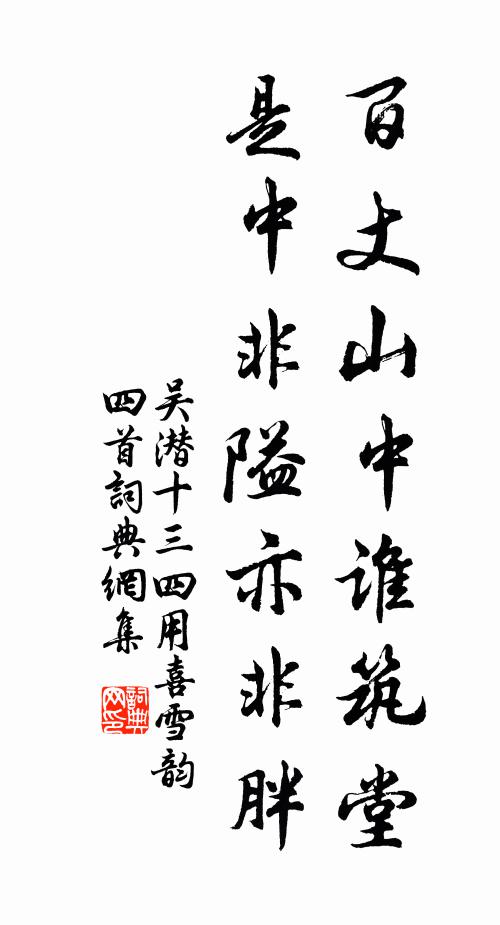 百丈山中谁筑堂
是中非隘亦非胖
吴潜十三四用喜雪韵
四首詞典網集
詞典网印